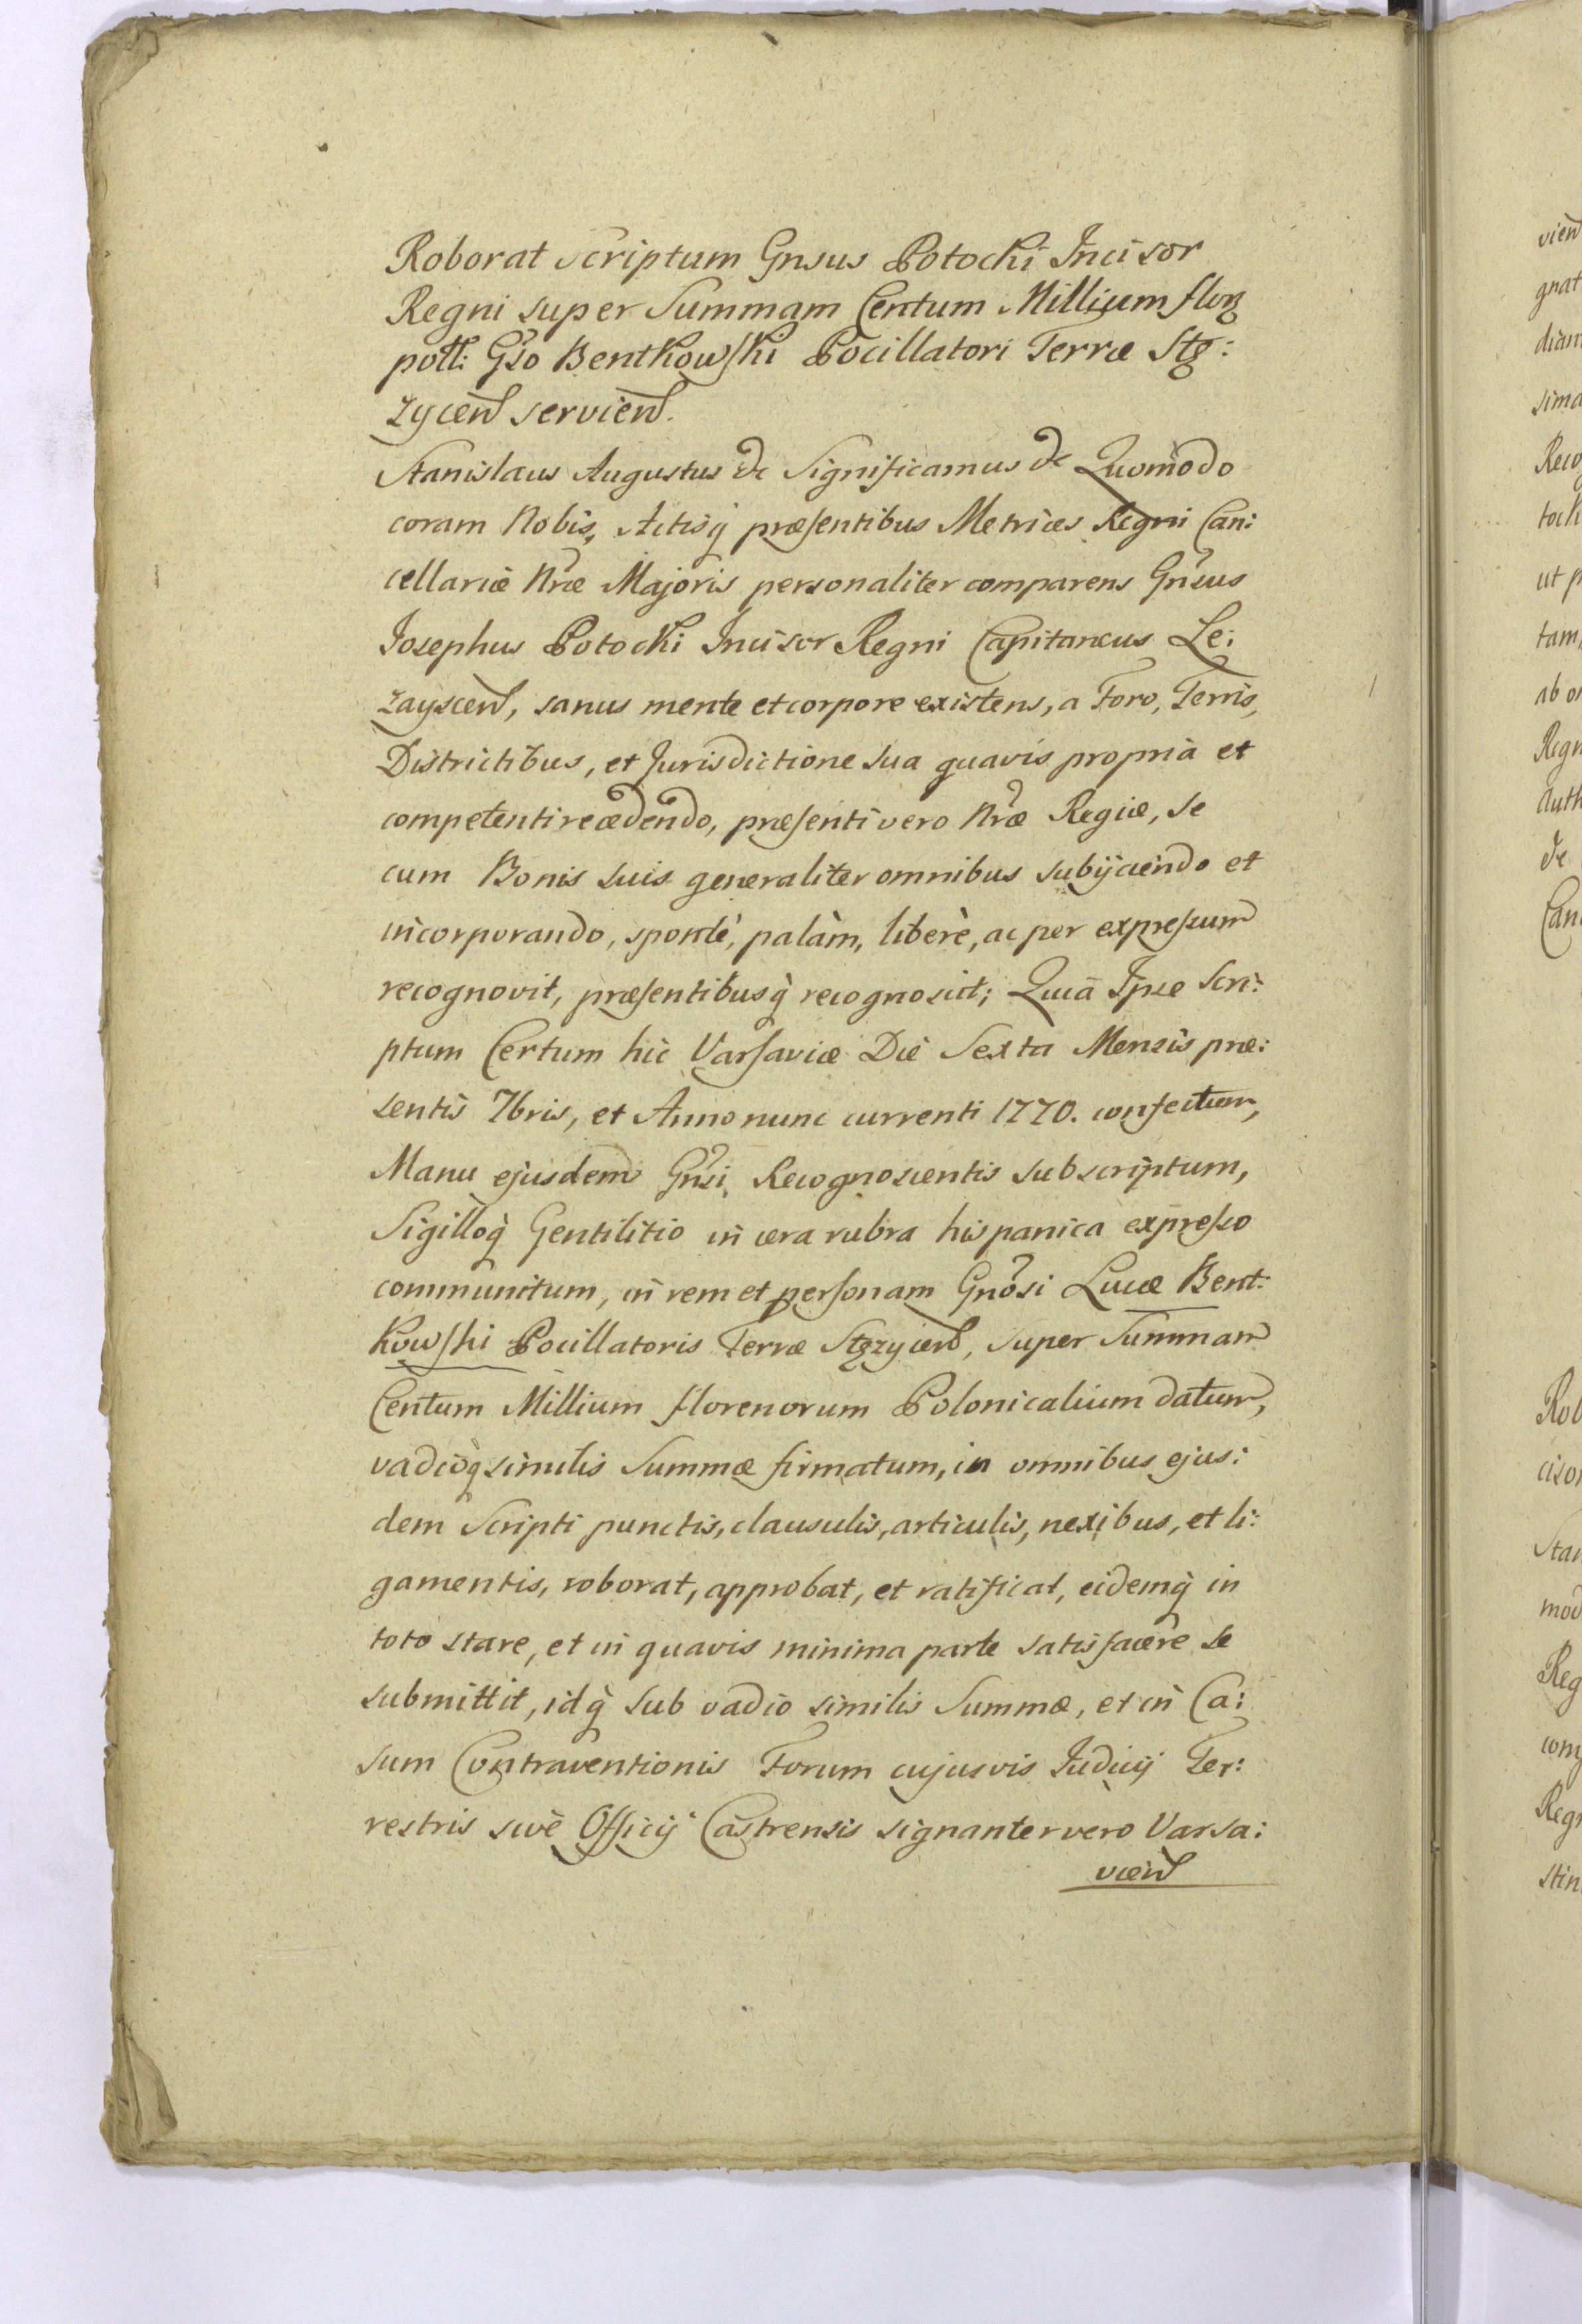 Roborat Scriptum Gnsus Potocki Incisor
Regni super Summam Centum Millium flor
poll: Gso Bentkowski Pocillatori Terræ Stę:
zycen servien.
Stanislaus Augustus &c Significamus &c Quomodo
coram Nobis, Actisq præsentibus Metrices Regni Can:
cellariæ Nræ Majoris personaliter comparens Gnsus
Josephus Potocki Incisor Regni Capitaneus Le:
zayscen, sanus mente et corpore existens, a Foro, Terris,
Districtibus, et Jurisdictione sua quavis propria et
competenti recedendo, præsenti vero Nræ Regiæ, se
cum Bonis suis generaliter omnibus subijciendo et
incorporando, spontè, palàm, liberè, ac per expressum
recognovit, præsentibusq recognoscit; Quia Ipse Scri:
ptum Certum hic Varsaviæ Die Sexta Mensis præ:
sentis 7bris, et Anno nunc currenti 1770. confectum,
Manu ejusdem Gnsi Recognoscentis subscriptum,
Sigilloq Gentilitio in cera rubra hispanica expresso
communitum, in rem et personam Gnosi Lucæ Bent:
kowski Pocillatoris Terræ Stęzycen, super Summam
Centum Millium florenorum Polonicalium datum,
vadioq similis Summæ firmatum, in omnibus ejus:
dem Scripti punctis, clausulis, articulis, nexibus, et li:
gamentis, roborat, approbat, et ratificat, eidemq in
toto stare, et in quavis minima parte satisfacere se
submittit, idq sub vadio similis Summæ, et in Ca:
sum Contraventionis Forum cujusvis Judicij Ter:
restris sivè Officij Castrensis signanter vero Varsa:
vien